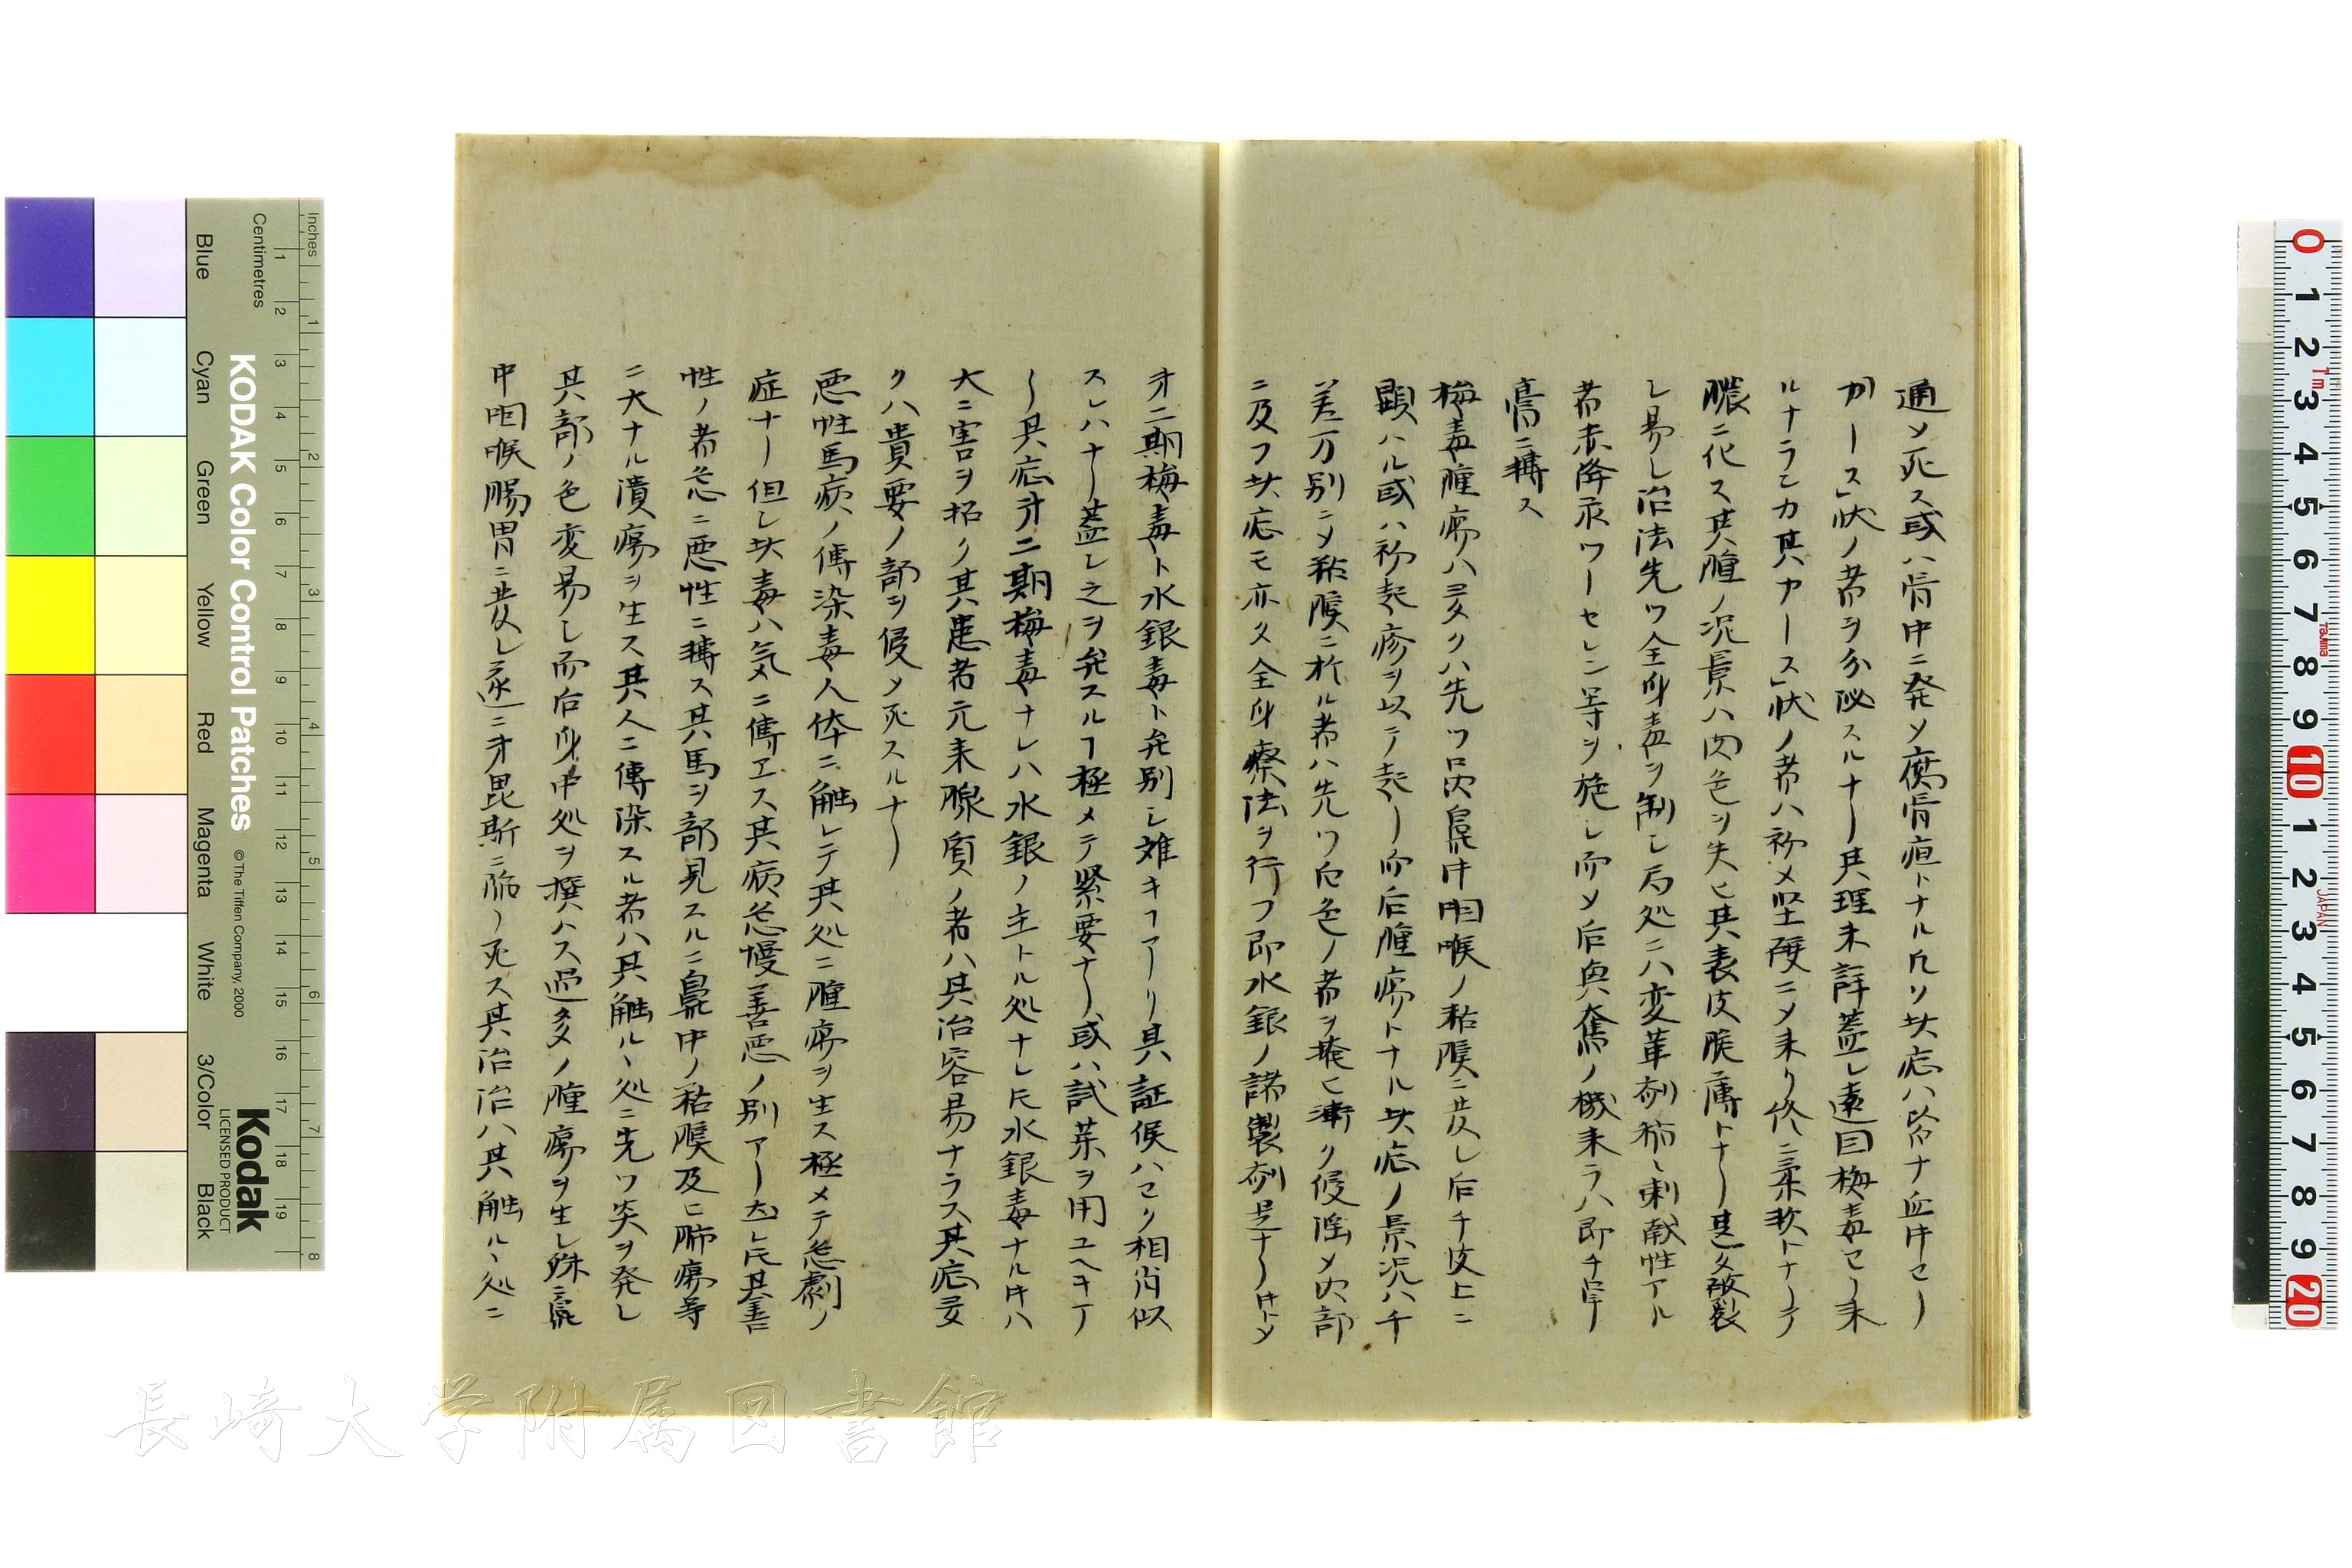 通メ死ス或ハ骨中ニ発メ腐骨疽トナル凡ソ此症ハ皆ナ血中ヨリ
カース」状ノ者ヲ分泌スルナリ其理未詳蓋シ遠因梅毒ヨリ来
ルナランカ其カース」状ノ者ハ初メ堅硬ニメ来リ終ニ柔軟トナリテ
膿ニ化ス其腫ノ況景ハ肉色ヲ失ヒ其表皮脱薄トナリ其又破裂
シ易シ治法先ツ全身毒ヲ制シ局処ニハ変革剤稍々刺戟性アル
者赤降汞ワーセレン等ヲ施シ而メ后奥奮ノ機来ラハ即チ単
膏ニ轉ス
梅毒腫瘍ハ多クハ先ツ口内鼻中咽喉ノ粘膜ニ発シ后チ皮上ニ
顕ハル或ハ初起疹ヲ以テ起リ而后腫瘍トナル此症ノ景況ハ千
差万別ニメ粘膜ニ於ル者ハ先ツ白色ノ者ヲ掩ヒ漸ク侵淫メ内部
ニ及フ此症モ亦タ全身療法ヲ行フ即水銀ノ諸製剤是ナリ
才二期梅毒ト水銀毒ト弁別シ難キヿアリ其証候ハヨク相肖似
スレハナリ蓋シ之ヲ弁スルヿ極メテ緊要ナリ或ハ試薬ヲ用ユヘキナ
リ其症才二期梅毒ナレハ水銀ノ主トル処ナレ𪜈水銀毒ナル片ハ
大ニ害ヲ招ク其患者元来腺質ノ者ハ其治容易ナラス其症多
クハ貴要ノ部ヲ侵メ死スルナリ
悪性馬病ノ傳染毒人体ニ触レテ其処ニ腫瘍ヲ生ス極メテ急劇ノ
症ナリ但シ此毒ハ気ニ傳ヱス其病急慢善悪ノ別アリ然レ𪜈其善
性ノ者急ニ悪性ニ轉ス其馬ヲ部見スルニ鼻中ノ粘膜及ヒ肺瘍等
ニ大ナル潰瘍ヲ生ス其人ニ傳染スル者ハ其触ルヽ処ニ先ツ炎ヲ発シ
其部ノ色変易シ而后身中処ヲ撰ハス過多ノ腫瘍ヲ生シ殊ニ鼻
中咽喉腸胃ニ発シ遂ニ才毘斯ニ陥リ死ス其治治ハ其触ルヽ処ニ
Inches
Centimetres
KODAK Color Control Patches
©The Tiffen Company, 2000
Kodak
LICENSED PRODUCT
Blue
Cyan
Green
Yellow
Red
Magenta
White
3/Color
Black
長崎大学附属図書館